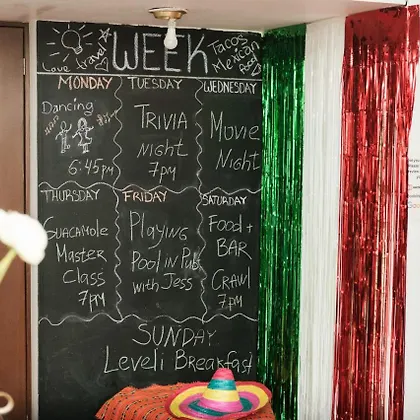 Love travel
WEEK
Tacos
Mexican
food
MONDAY
Dancing
6:45pm
TUESDAY
TRIVIA
NIGHT
7pm
WEDNESDAY
MOVIE
NIGHT
THURSDAY
GUACAMOLE
MASTER
CLASS
7pm
FRIDAY
PLAYING
POOL IN PUB
with JESS
SATURDAY
FOOD +
BAR
CRAWL
7pm
SUNDAY
Leveli Breakfast